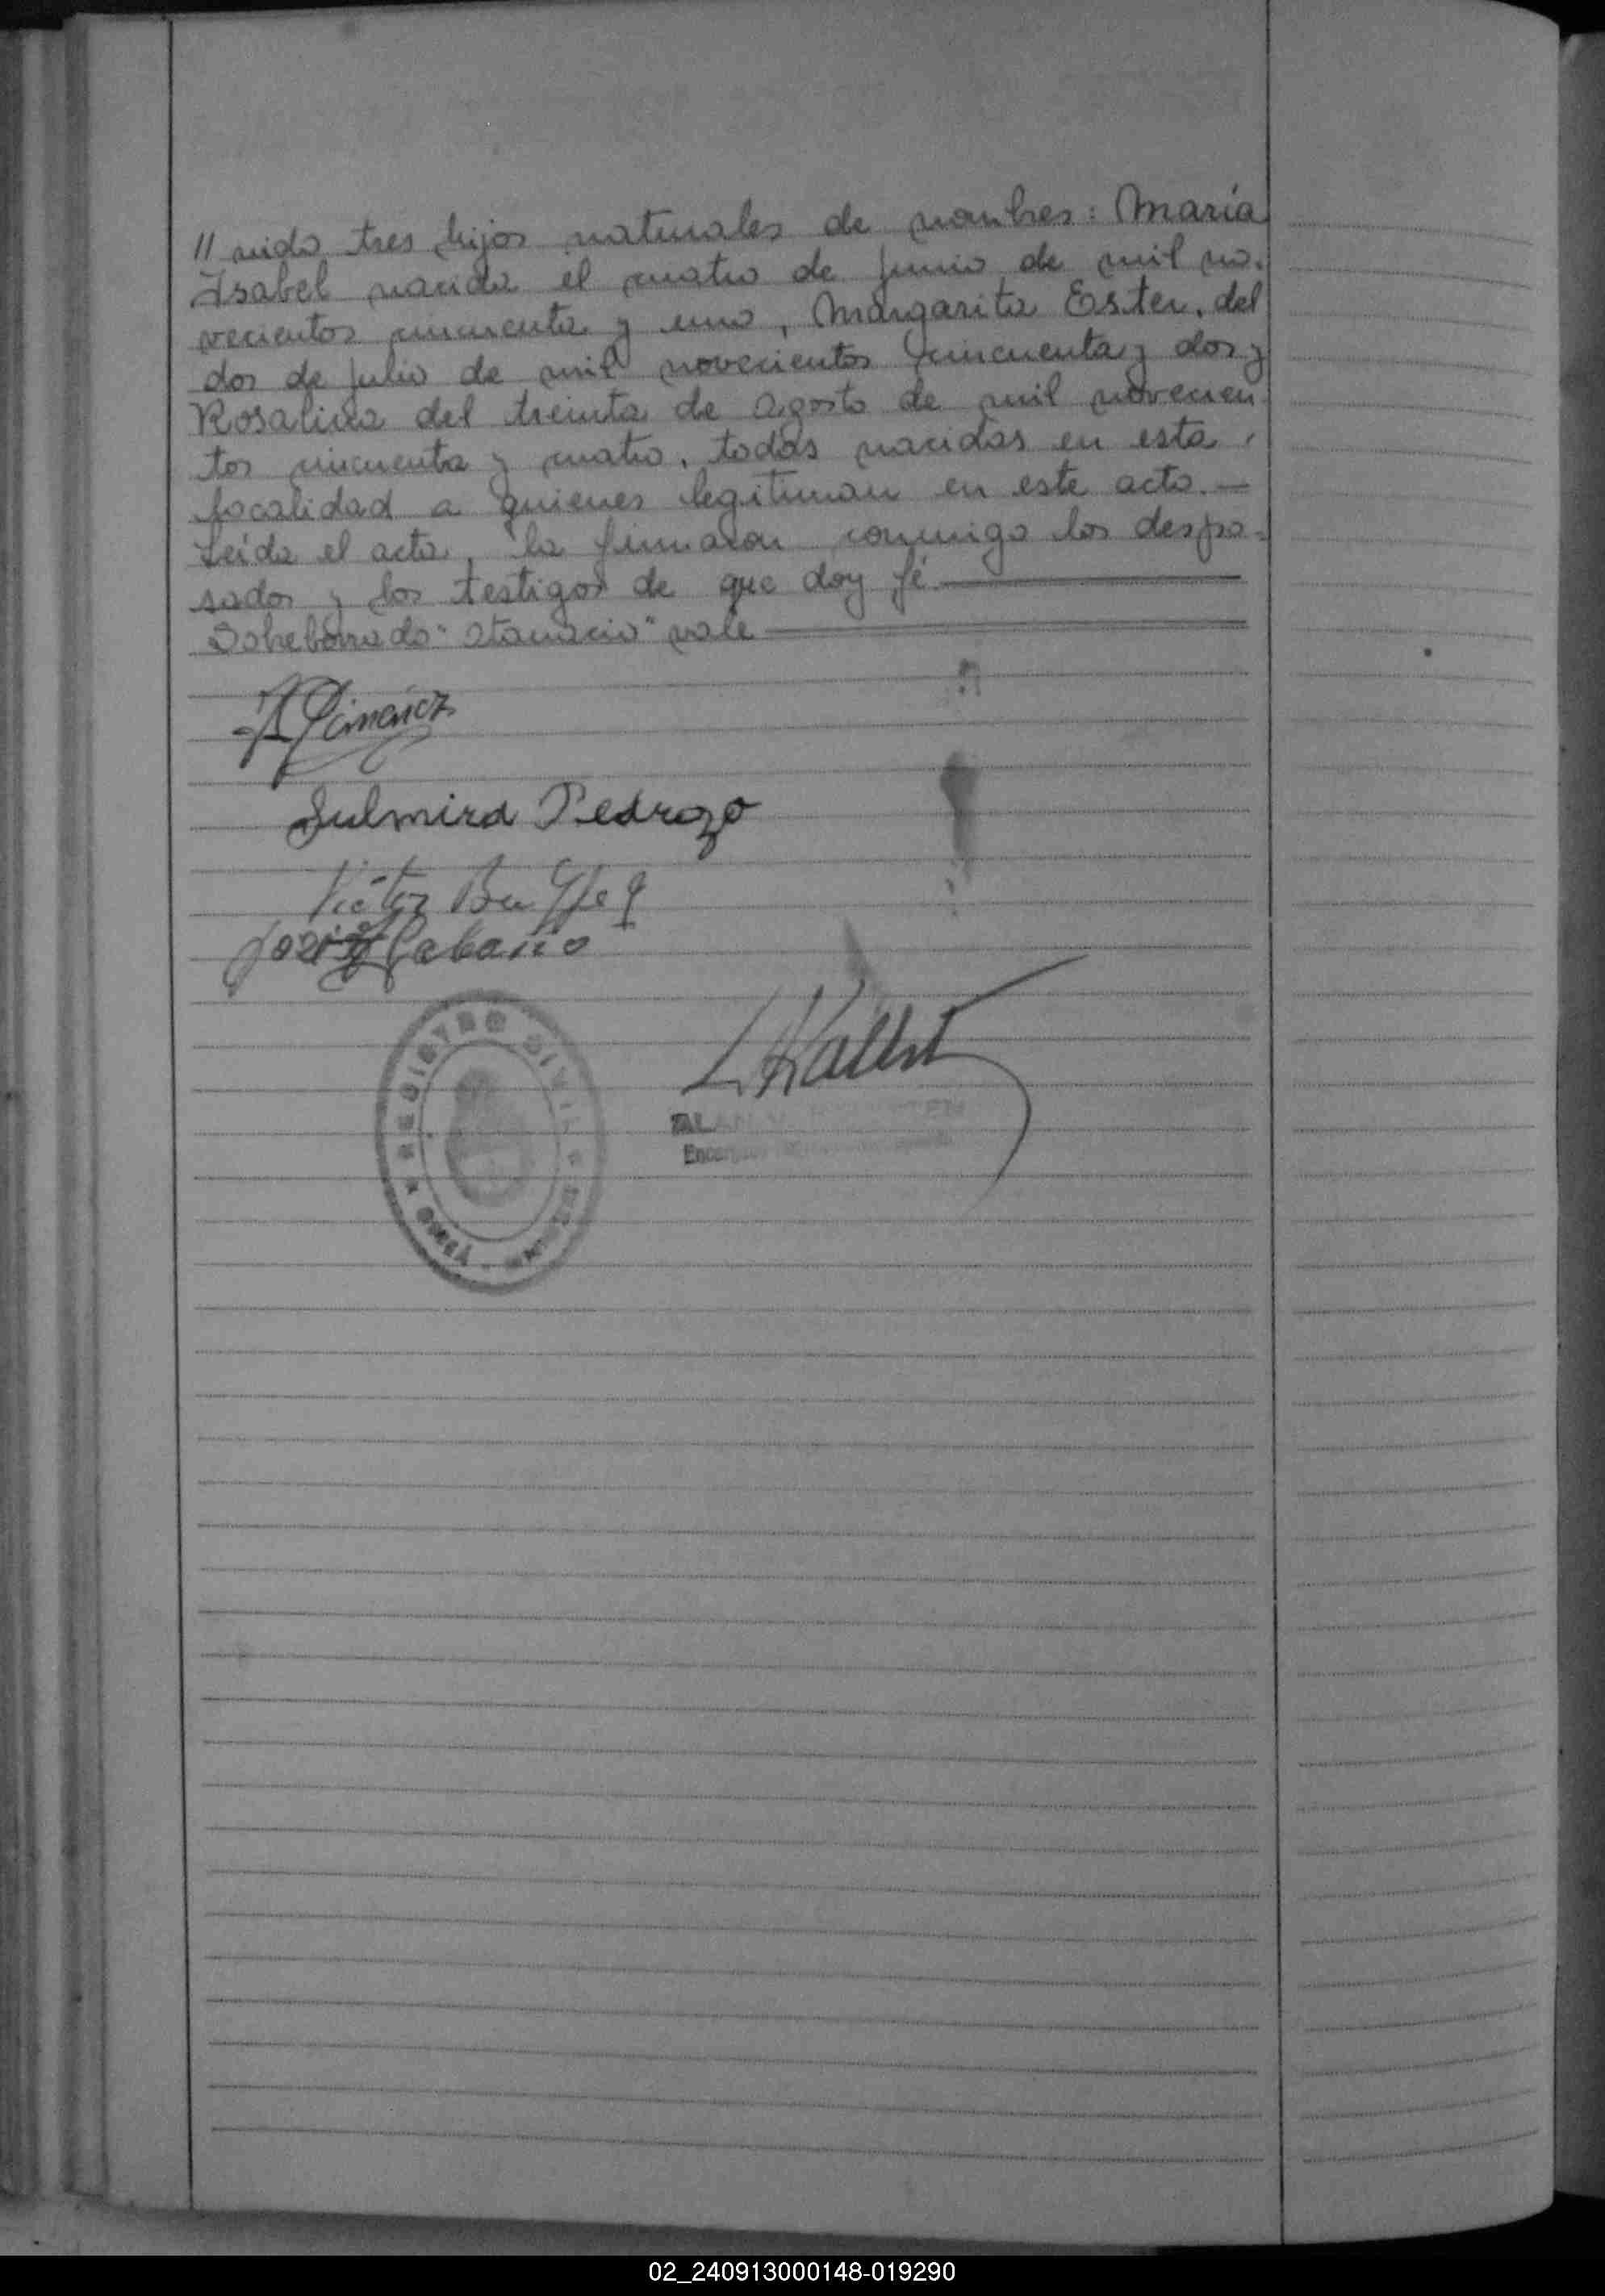 // nido tres hijos naturales de nombres: María
Isabel nacida el cuatro de Junio de mil no-
vecientos cincuenta y uno, Margarita Ester, del
dos de Julio de mil novecientos cincuenta y dos y
Rosalina del treinta de Agosto de mil novecien-
tos cincuenta y cuatro, todas nacidas en esta
localidad a quienes legitiman en este acto.—
Leída el acta, la firmaron conmigo los despo-
sados y los testigos de que doy fé.
Sobreborrado "Atanacio" vale
A Gimenez
Sulmira Pedrozo
Victor
José Cabaño
REGISTRO CIVIL